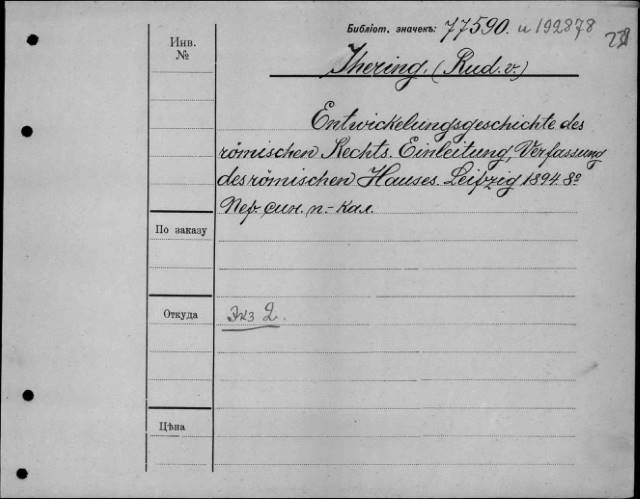 Библіот. значекъ: 77590. и 192878
Инв.
№
Jhering. (Rud. v.)
Entwickelungsgeschichte des
römischen Rechts. Einleitung, Verfassung
des römischen Hauses. Leipzig 1894. 8º
Пер. син. п.-кал.
По заказу
Откуда
Экз 2.
Цѣна